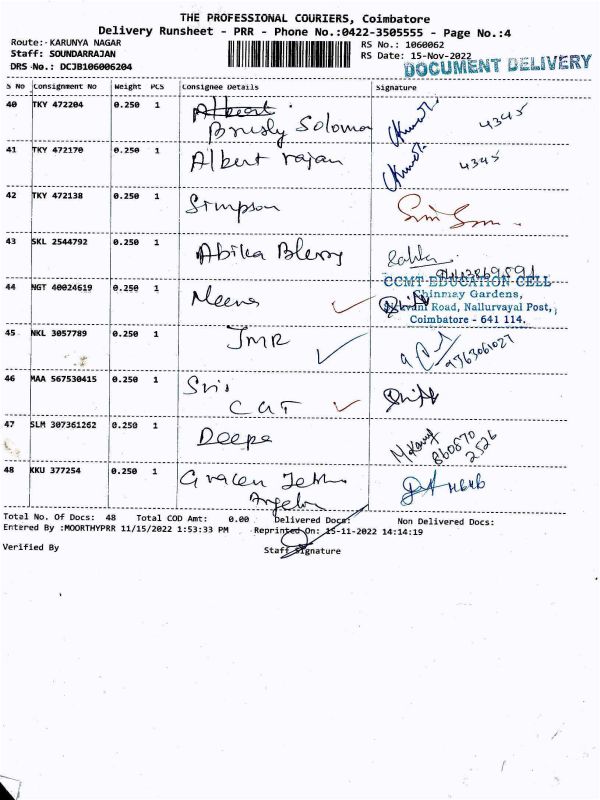 THE PROFESSIONAL COURIERS, Coimbatore
Delivery Runsheet - PRR - Phone No.:0422-3505555 - Page No.:4
Route: KARUNYA NAGAR
RS No.: 1060062
Staff: SOUNDARRAJAN
RS Date: 15-Nov-2022
DRS No.: DCJB106006204
DOCUMENT DELIVERY
S No Consignment No Weight PCS Consignee Details Signature
40 TKY 472204 0.250 1
Brusly Soloman 4345
41 TKY 472170 0.250 1 Albert rajan 4345
42 TKY 472138 0.250 1 Simpson
43 SKL 2544792 0.250 1 Abika Blessy
44 NGT 40024619 0.250 1 Meena
CCMT EDUCATION CELL
Chinmay Gardens,
Road, Nallurvayal Post,
Coimbatore - 641 114.
45 NKL 3057789 0.250 1 JMR 9363061027
46 MAA 567530415 0.250 1 Sri
CUT
47 SLM 307361262 0.250 1 Deepa
860870
2526
48 KKU 377254 0.250 1
Total No. Of Docs: 48 Total COD Amt: 0.00 Delivered Docs: Non Delivered Docs:
Entered By :MOORTHYPRR 11/15/2022 1:53:33 PM Reprinted On: 15-11-2022 14:14:19
Verified By Staff Signature